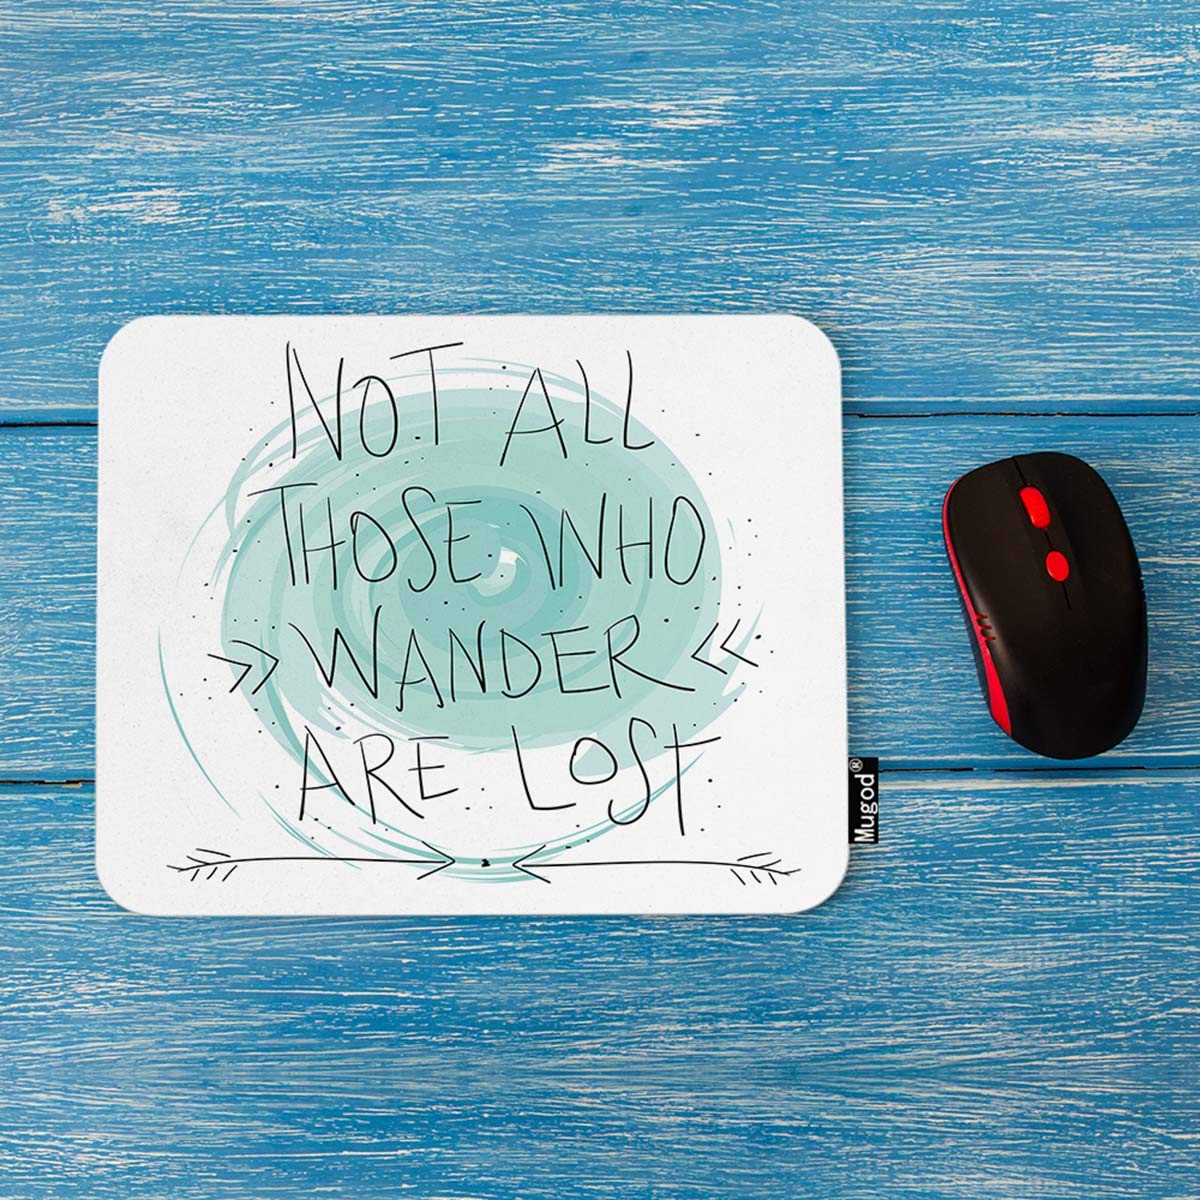 NOT ALL
THOSE WHO
» WANDER «
ARE LOST
Mugod®